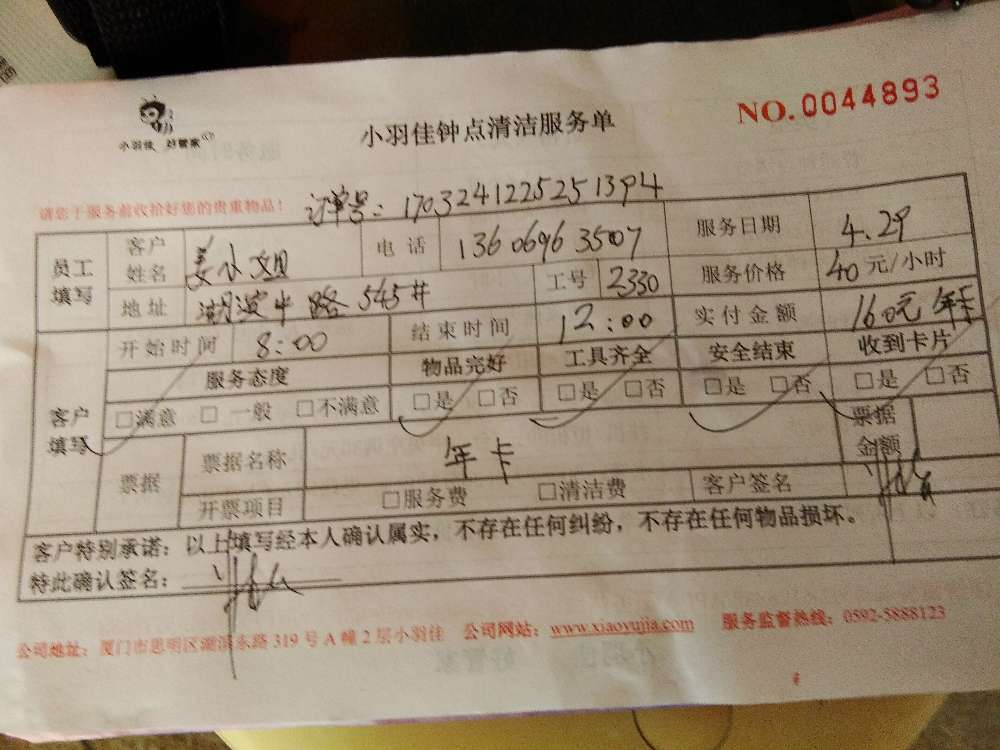 小羽佳 好管家
小羽佳钟点清洁服务单
NO.0044893
请您于服务前收拾好您的贵重物品!
订单号：1703241225251394
员工填写 客户姓名 姜小姐 电话 13606963507 服务日期 4.29
地址 湖滨中路545# 工号 2330 服务价格 40元/小时
客户填写 开始时间 8:00 结束时间 12:00 实付金额 160元 年卡
服务态度 物品完好 工具齐全 安全结束 收到卡片
□满意 □一般 □不满意 □是 □否 □是 □否 □是 □否 □是 □否
票据 票据名称 年卡 票据金额
开票项目 □服务费 □清洁费 客户签名
客户特别承诺：以上填写经本人确认属实，不存在任何纠纷，不存在任何物品损坏。
特此确认签名：
公司地址：厦门市思明区湖滨东路319号A幢2层小羽佳 公司网站：www.xiaoyujia.com 服务监督热线：0592-5888123